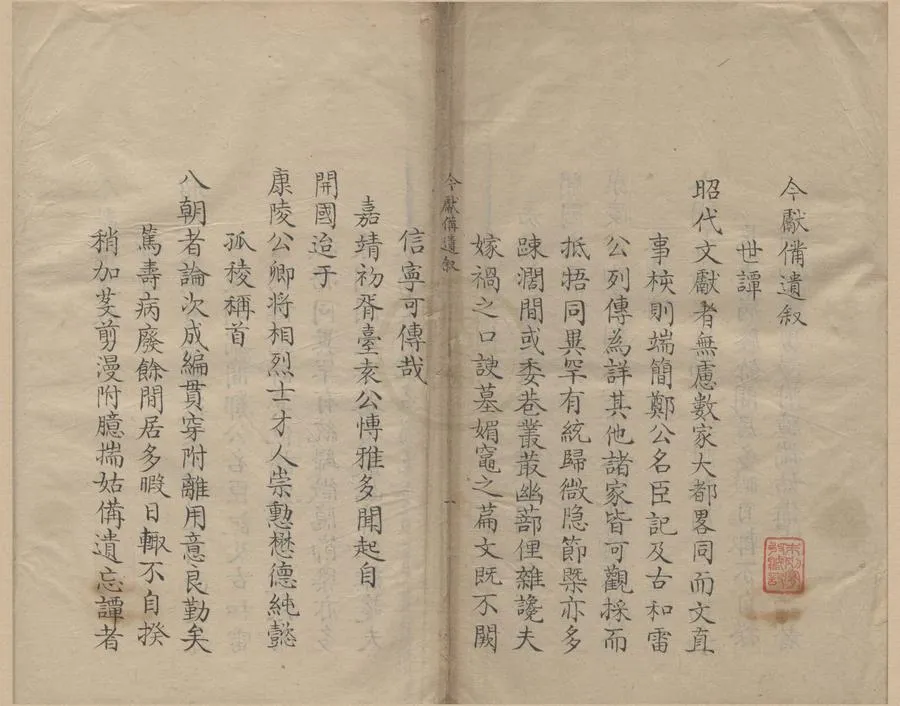 今獻備遺叙
世譚
昭代文獻者無慮數家大都畧同而文直
事核則端簡鄭公名臣記及古和雷
公列傳為詳其他諸家皆可觀採而
抵牾同異罕有統歸微隐節槩亦多
踈濶間或委巷叢菆幽蔀俚雜讒夫
嫁禍之口諛墓媚竈之篇文既不闕
今獻備遺叙
一
信寧可傳哉
嘉靖初胥臺袁公愽雅多聞起自
開國迨于
康陵公卿將相烈士才人崇勲懋德純懿
孤稜稱首
八朝者論次成編貫穿附離用意良勤矣
篤壽病廢餘閒居多暇日輙不自揆
稍加芟剪漫附臆揣姑備遺忘譚者